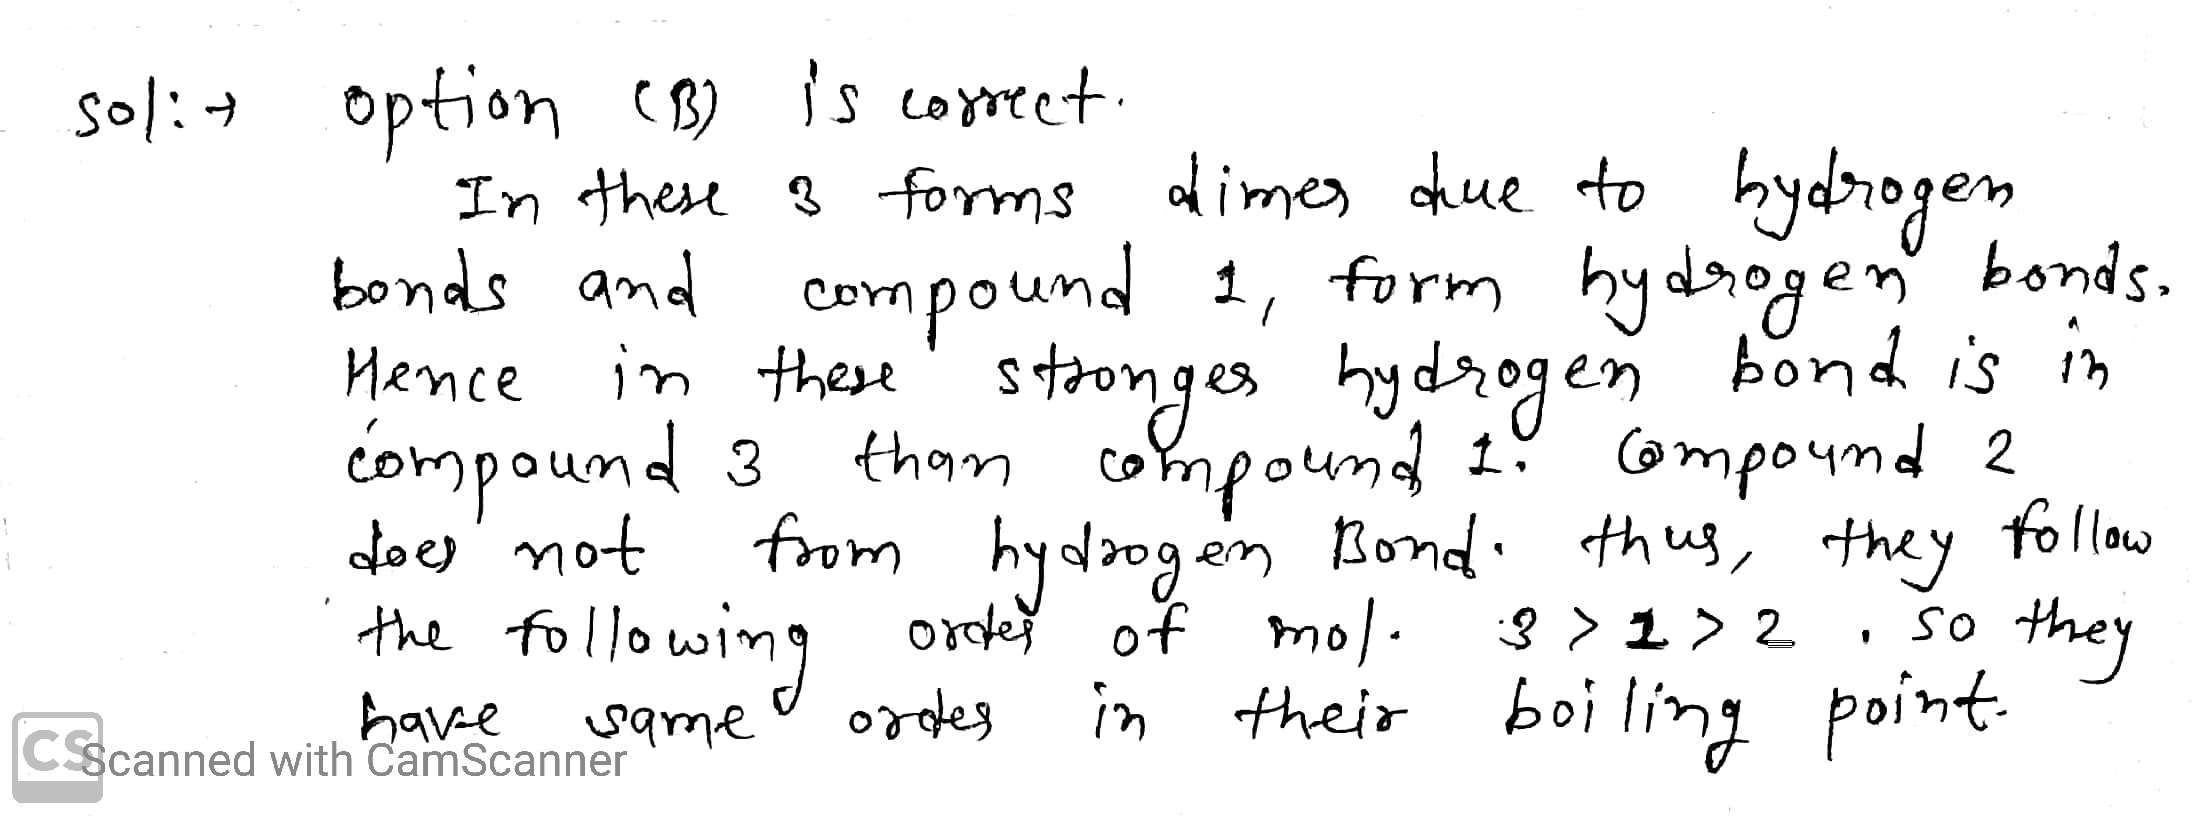 sol:→ option (B) is correct.
In these 3 forms dimer due to hydrogen
bonds and compound 1, form hydrogen bonds.
Hence in these stronger hydrogen bond is in
compound 3 than compound 1. Compound 2
does not from hydrogen Bond. thus, they follow
the following order of mol. 3 > 1 > 2 . so they
have same order in their boiling point.
CS Scanned with CamScanner